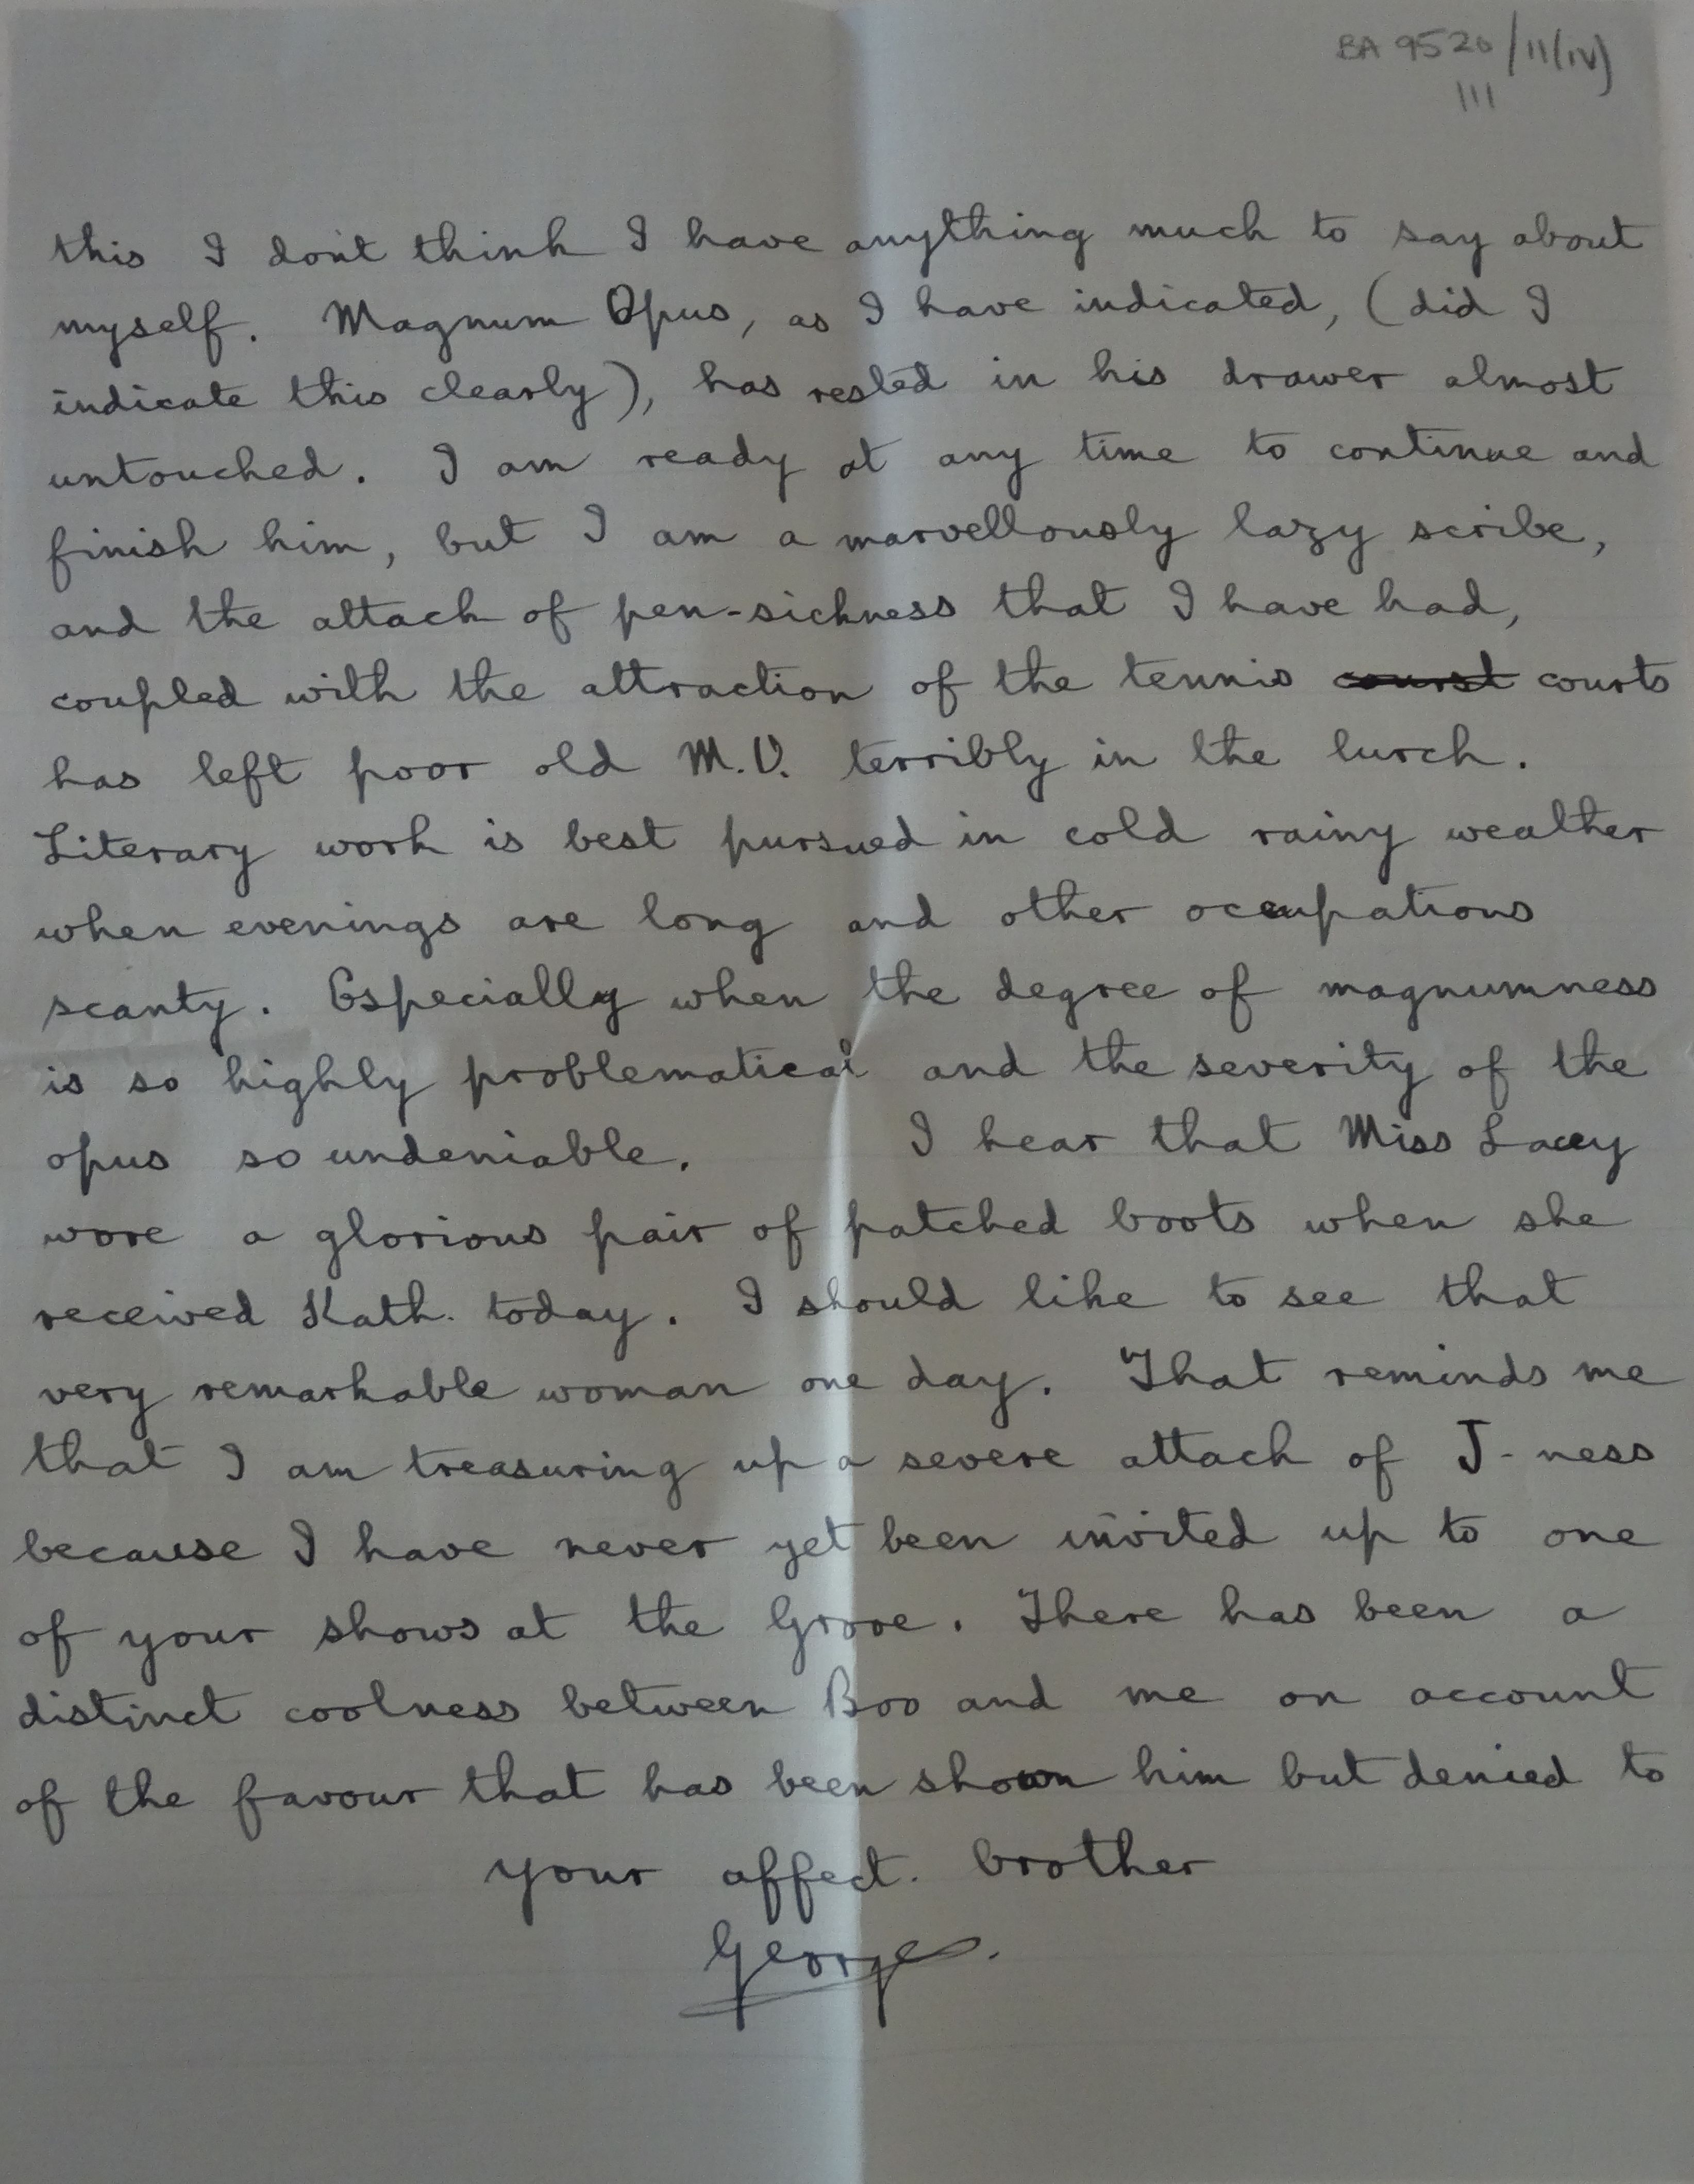 BA 9520/II(IV)
III
this I don't think I have anything much to say about
myself. Magnum Opus, as I have indicated, (did I
indicate this clearly), has rested in his drawer almost
untouched. I am ready at any time to continue and
finish him, but I am a marvellously lazy scribe,
and the attack of pen-sickness that I have had,
coupled with the attraction of the tennis courst courts
has left poor old M.O. terribly in the lurch.
Literary work is best pursued in cold rainy weather
when evenings are long and other occupations
scanty. Especially when the degree of magnumness
is so highly problematical and the severity of the
opus so undeniable. I hear that Miss Lacey
wore a glorious pair of patched boots when she
received Kath. today. I should like to see that
very remarkable woman one day. That reminds me
that I am treasuring up a severe attack of J-ness
because I have never yet been invited up to one
of your shows at the Grove. There has been a
distinct coolness between Boo and me on account
of the favour that has been shown him but denied to
your affect. brother
George.